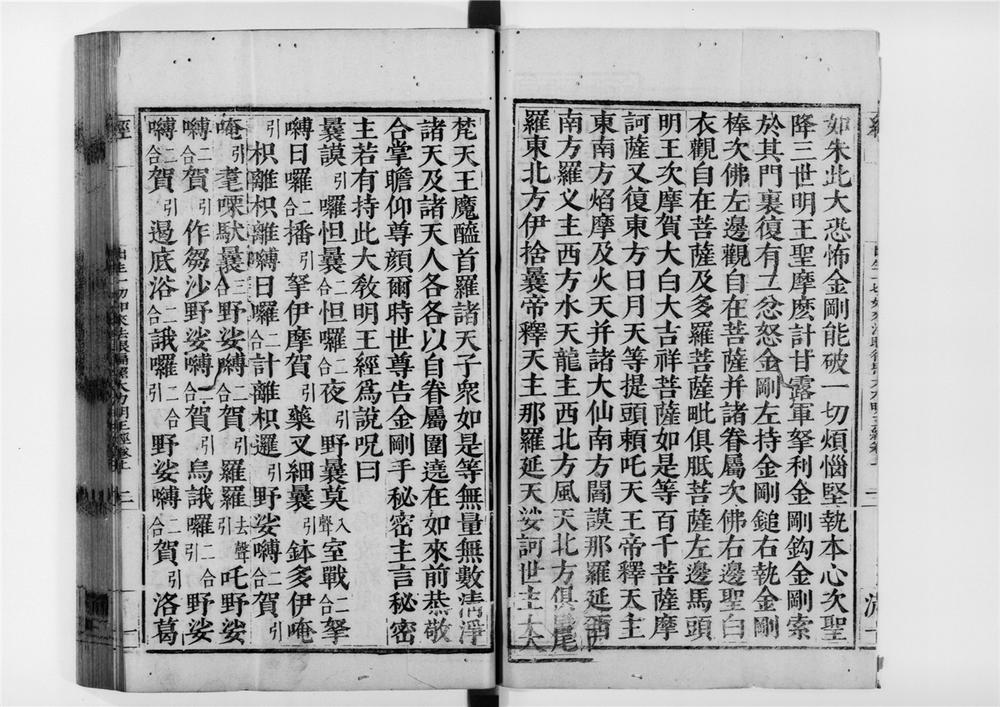 如朱此大恐怖金剛能破一切煩惱堅執本心次聖
降三世明王聖摩麽計甘露軍拏利金剛鈎金剛索
於其門裏復有二忿怒金剛左持金剛鎚右執金剛
棒次佛左邊觀自在菩薩并諸眷屬次佛右邊聖白
衣觀自在菩薩及多羅菩薩毗俱胝菩薩左邊馬頭
明王次摩賀大白大吉祥菩薩如是等百千菩薩摩
訶薩又復東方日月天等提頭頼吒天王帝釋天主
東南方焰摩及火天并諸大仙南方閻謨那羅延
南方羅义主西方水天龍主西北方風天北方俱尾
羅東北方伊捨曩帝釋天主那羅延天娑訶世主大
梵天王魔醯首羅諸天子衆如是等無量無數清淨
諸天及諸天人各各以自眷屬圍遶在如來前恭敬
合掌瞻仰尊顔爾時世尊告金剛手秘密主言秘密
主若有持此大敎明王經爲說呪曰
曩謨引囉怛曩二合怛囉二合夜引野曩莫入聲室戰二合拏
嚩日囉二合播引拏伊摩賀引藥叉細曩引鉢多伊唵
引枳離枳離嚩日囉二合計離枳邏引野娑嚩二合賀引
唵引耄㗚馱曩二合野娑嚩二合賀引羅羅引去聲吒野娑
嚩二合賀引作芻沙野娑嚩二合賀引烏誐囉二合引野娑
嚩二合賀引遏底浴二合誐囉二合引野娑嚩二合賀引洛葛
經
出生一切如來法眼徧照大力明王經卷上
二